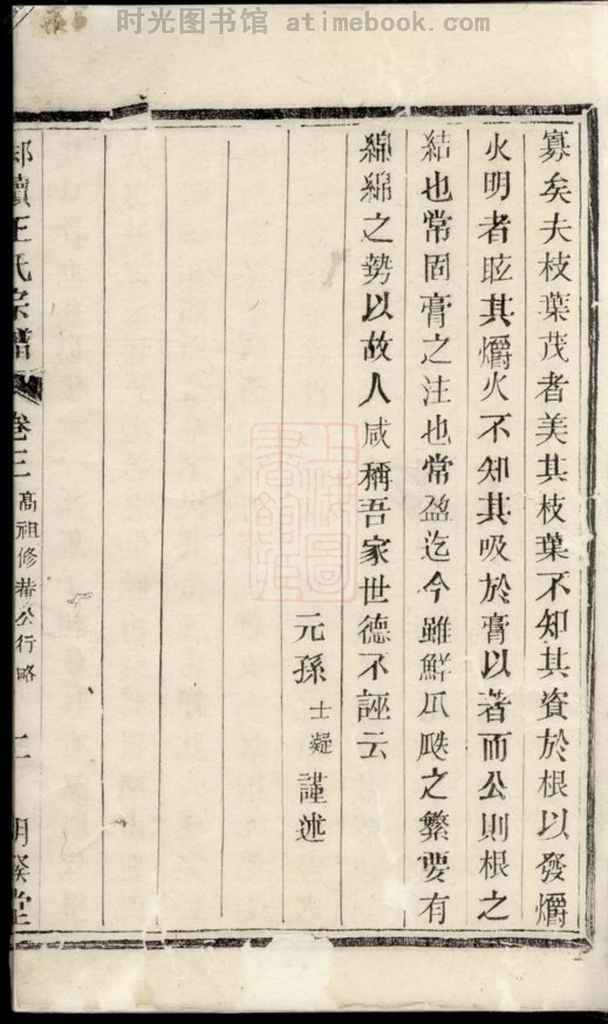 时光图书馆 atimebook.com
寡矣夫枝葉茂者美其枝葉不知其資於根以發爝
火明者眩其爝火不知其吸於膏以著而公則根之
結也常固膏之注也常盈迄今雖鮮瓜瓞之繁要有
綿綿之勢以故人咸稱吾家世德不誣云
元孫士凝謹述
王氏宗譜 卷三 高祖修菴公行略 二 堂